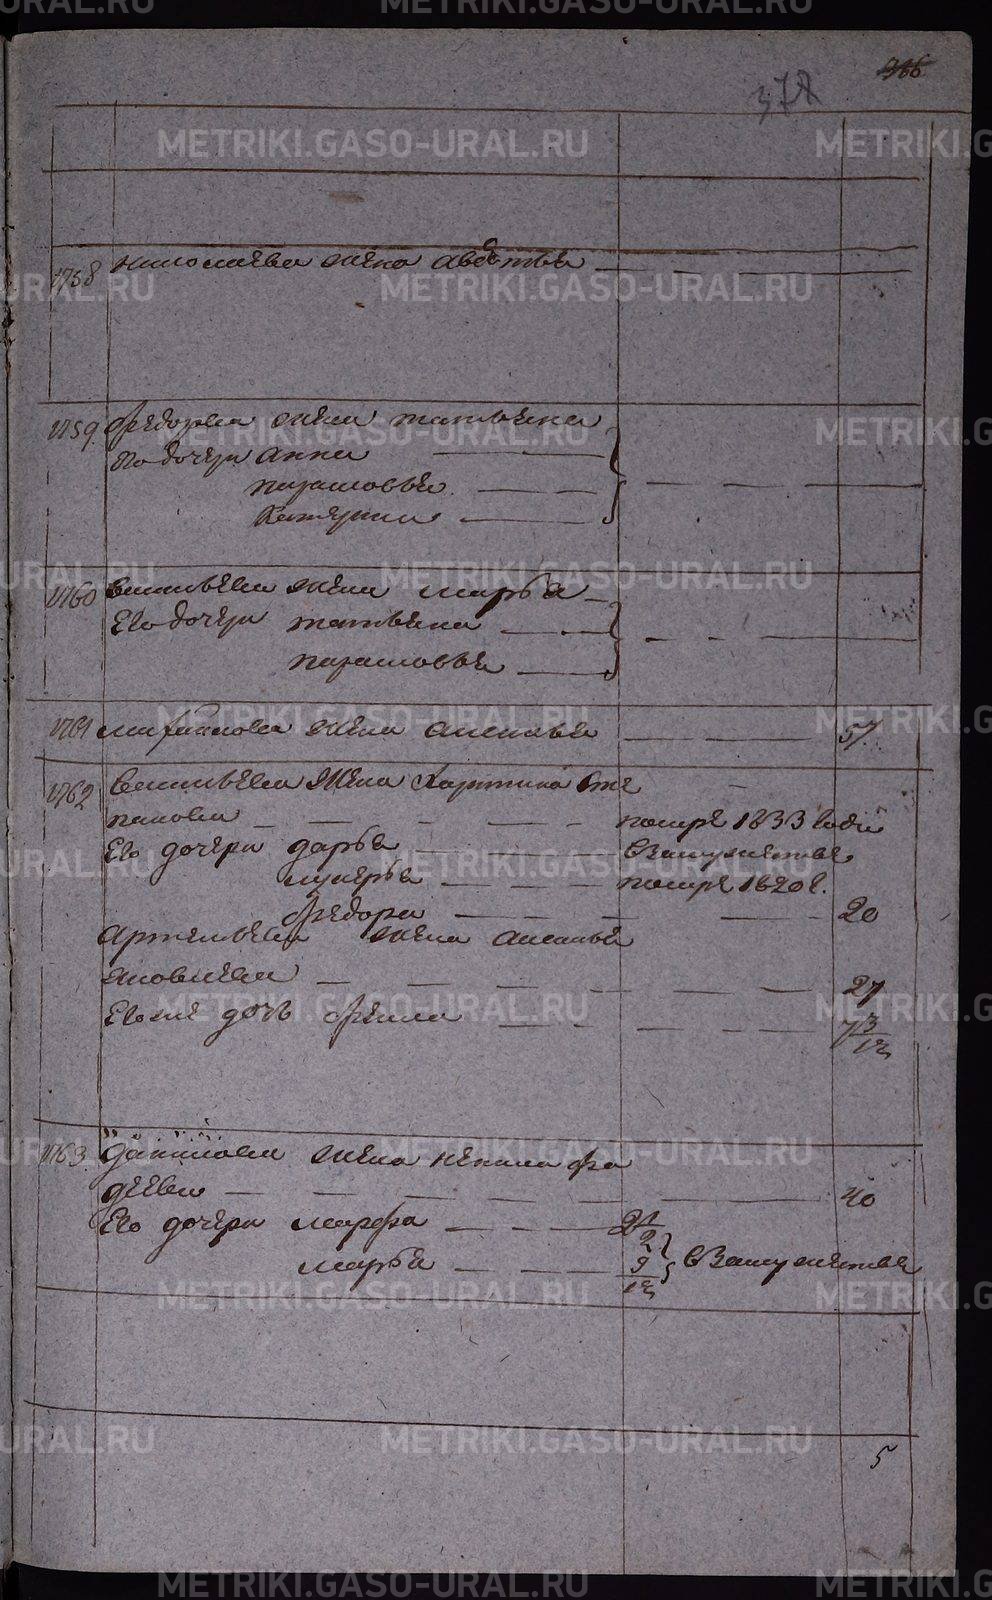 METRIKI.GASO-URAL.RU
366
378
1758 николаева жена авдотья
1759 Федорова жена татьяна
Его дочери анна
парасковья
Катерина
1760 Васильева жена марья
Его дочери татьяна
парасковья
1761 михайлова жена аксинья 57
1762 Васильева жена Харитина сте
панова помре 1833 годе
Его дочери дарья в замужестве
лукерья помре 1820 г.
федора 20
Артемьева жена аксинья
яковлева 27
Его же дочь 7 3/12
1763 Данилова жена фа
деева 40
Его дочери марфа
марья 9/12 } в замужестве
5